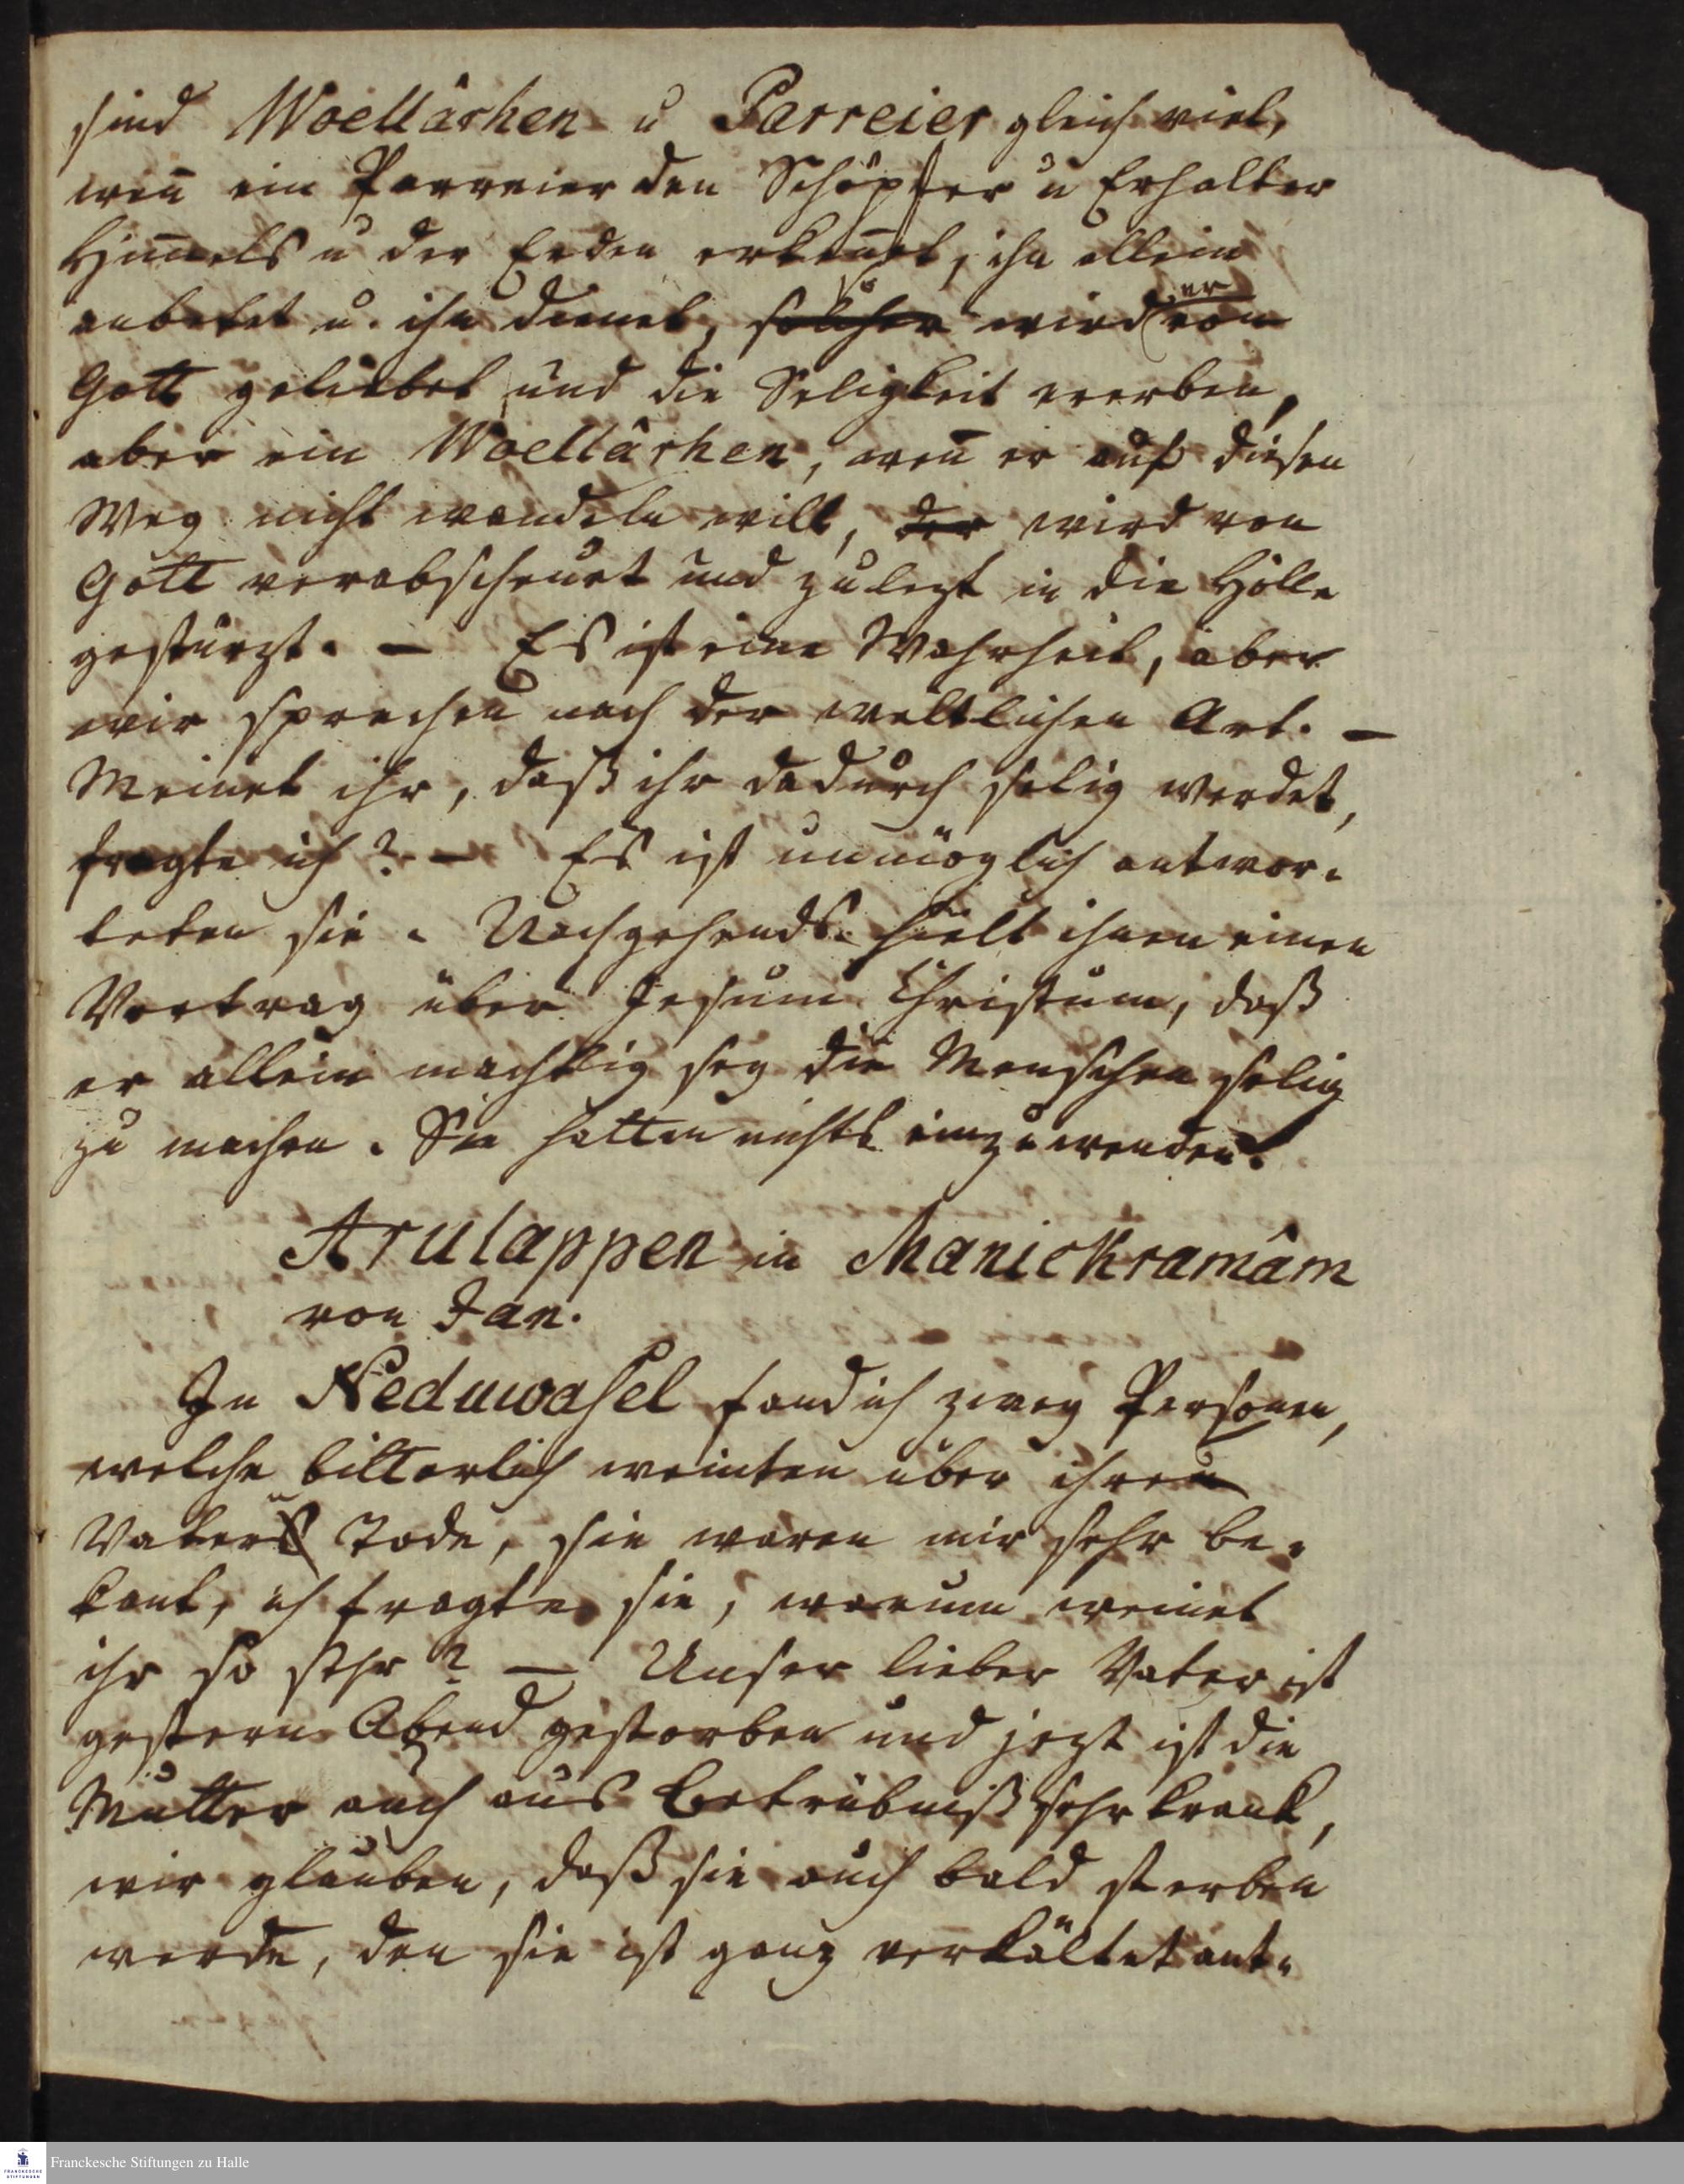 sind Woellârhen u Parreier gleich viel,
weñ ein Parreier den Schöpfer u Erhalter
Him̃els u der Erden erkeñet, ihn allein
anbetet u. ihn dienet, solcher so wird er von
Gott geliebet und die Seligkeit ererben,
aber ein Woellârhen, weñ er auf diesen
Weg nicht wandeln will, der wird von
Gott verabscheuet und zulezt in die Hölle
gestürzt. – Es ist eine Wahrheit, aber
wir sprechen nach der weltlichen Art. –
Meinet ihr, daß ihr dadurch selig werdet,
fragte ich? – Es ist unmöglich antwor-
teten sie. Nachgehends hielt ihnen einen
Vortrag über Jesum Christum, daß
er allein mächtig sey die Menschen selig
zu machen. Sie hatten nichts einzuwenden.
Arulappen in Manickramâm
von Jan.
In Neduwasel fand ich zwey Personen,
welche bitterlich weinten über ihren
Vaters Tode, sie waren mir sehr be-
kant, ich fragte sie, warum weinet
ihr so sehr? – Unser lieber Vater ist
gestern Abend gestorben und jezt ist die
Mutter auch aus Betrübniß sehr krank,
wir glauben, daß sie auch bald sterben
werde, den sie ist ganz verkältet ant-
Franckesche Stiftungen zu Halle
FRANCKESCHE
STIFTUNGEN